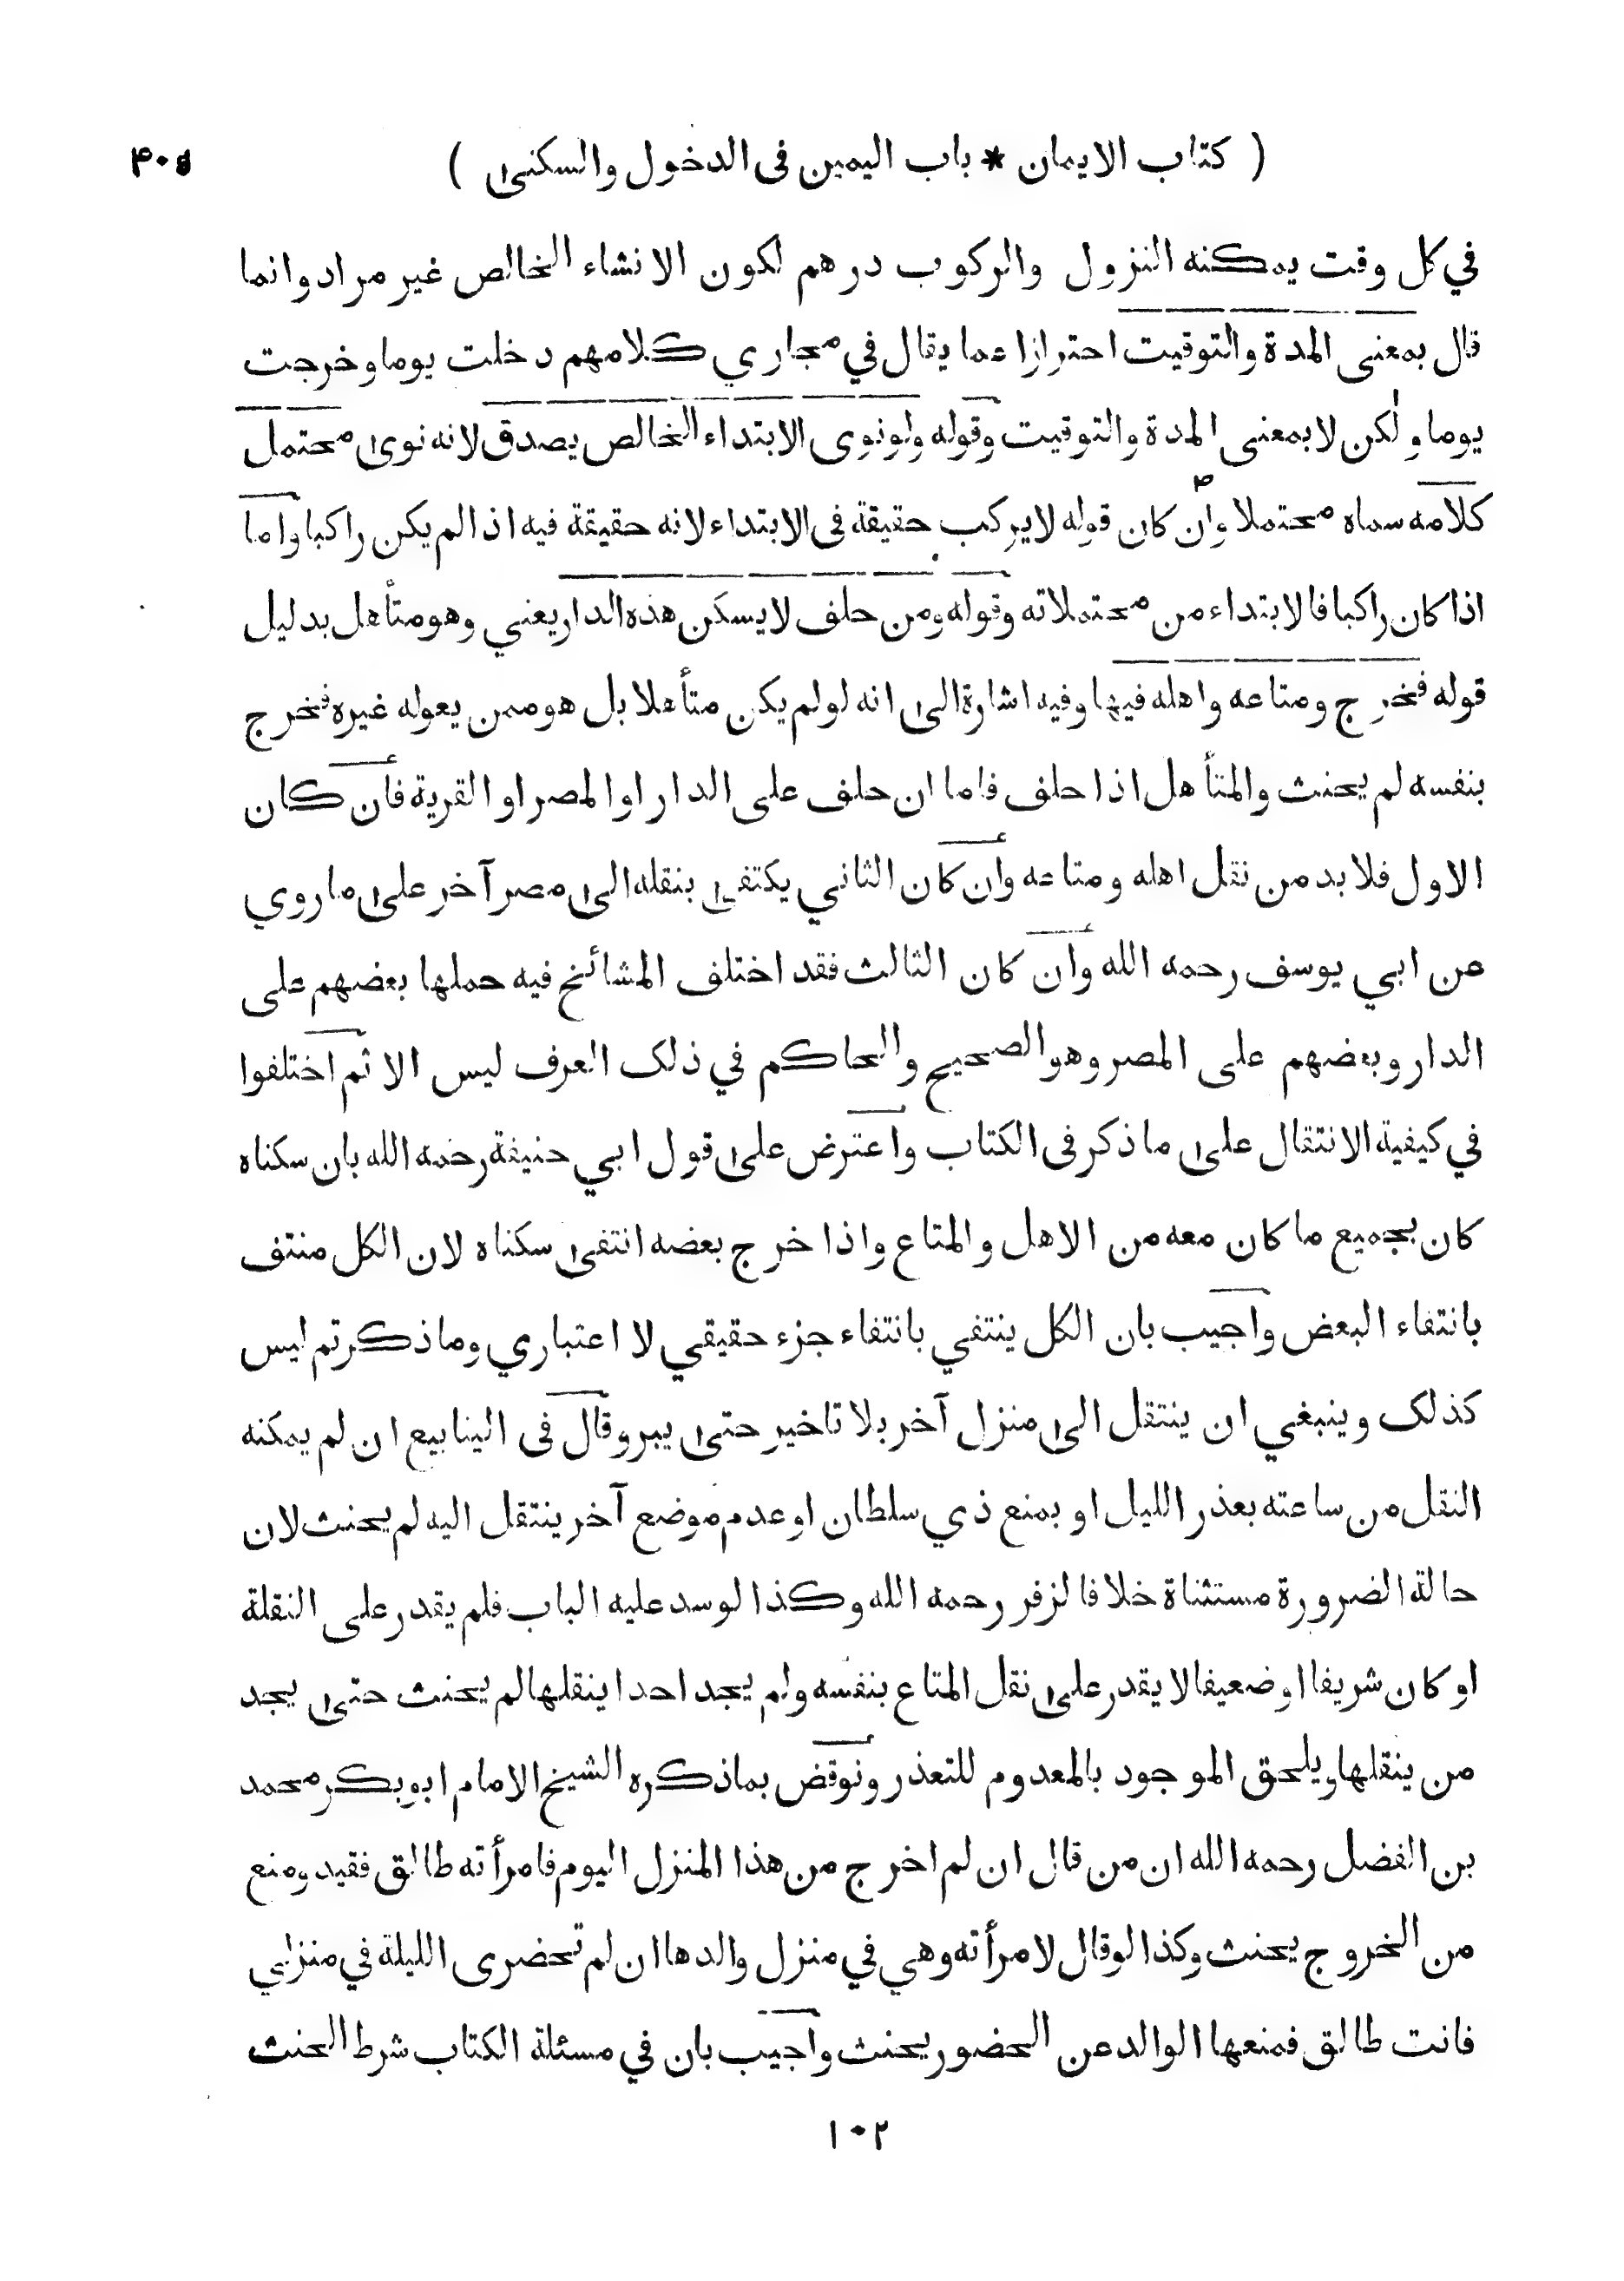 ( كتاب الايمان * باب اليمين فى الدخول والسكنى ) ۴۰۵
في كل وقت يمكنه النزول والركوب درهم لكون الانشاء الخالص غير مراد وانما
قال بمعنى المدة والتوقيت احترازا عما يقال في مجاري كلامهم دخلت يوما وخرجت
يوما ولكن لا بمعنى المدة والتوقيت وقوله ولو نوى الابتداء الخالص يصدق لانه نوى محتمل
كلامه سماه محتملا وان كان قوله لا يركب حقيقة فى الابتداء لانه حقيقة فيه اذا لم يكن راكبا واما
اذا كان راكبا فالابتداء من محتملاته وقوله ومن حلف لا يسكن هذه الدار يعني وهو متأهل بدليل
قوله فخرج ومتاعه واهله فيها وفيه اشارة الى انه لو لم يكن متأهلا بل هو ممن يعوله غيره فخرج
بنفسه لم يحنث والمتأهل اذا حلف فاما ان حلف على الدار او المصر او القرية فان كان
الاول فلا بد من نقل اهله ومتاعه وان كان الثاني يكتفى بنقله الى مصر آخر على ما روي
عن ابي يوسف رحمه الله وان كان الثالث فقد اختلف المشائخ فيه حملها بعضهم على
الدار وبعضهم على المصر وهو الصحيح والحاكم في ذلك العرف ليس الا ثم اختلفوا
في كيفية الانتقال على ما ذكر فى الكتاب واعترض على قول ابي حنيفة رحمه الله بان سكناه
كان بجميع ما كان معه من الاهل والمتاع واذا خرج بعضه انتفى سكناه لان الكل منتف
بانتفاء البعض واجيب بان الكل ينتفي بانتفاء جزء حقيقي لا اعتباري وما ذكرتم ليس
كذلك وينبغي ان ينتقل الى منزل آخر بلا تاخير حتى يبر وقال فى الينابيع ان لم يمكنه
النقل من ساعته بعذر الليل او بمنع ذي سلطان او عدم موضع آخر ينتقل اليه لم يحنث لان
حالة الضرورة مستثناة خلافا لزفر رحمه الله وكذا لو سد عليه الباب فلم يقدر على النقلة
او كان شريفا او ضعيفا لا يقدر على نقل المتاع بنفسه ولم يجد احدا ينقلها لم يحنث حتى يجد
من ينقلها ويلحق الموجود بالمعدوم للتعذر ونوقض بما ذكره الشيخ الامام ابو بكر محمد
بن الفضل رحمه الله ان من قال ان لم اخرج من هذا المنزل اليوم فامرأته طالق فقيد ومنع
من الخروج يحنث وكذا لو قال لامرأته وهي في منزل والدها ان لم تحضرى الليلة في منزلي
فانت طالق فمنعها الوالد عن الحضور يحنث واجيب بان في مسئلة الكتاب شرط الحنث
۱۰۲